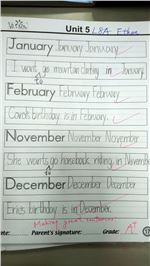 Unit 5 L8A Ethan
January January January
I want go mountain climbing in January.
to
February February February
Carol's birthday is in February.
November November November
She wants go horseback riding in November
to
December December December
Eric's birthday is in December.
Making great sentences!
Parent's signature: Grade: A+